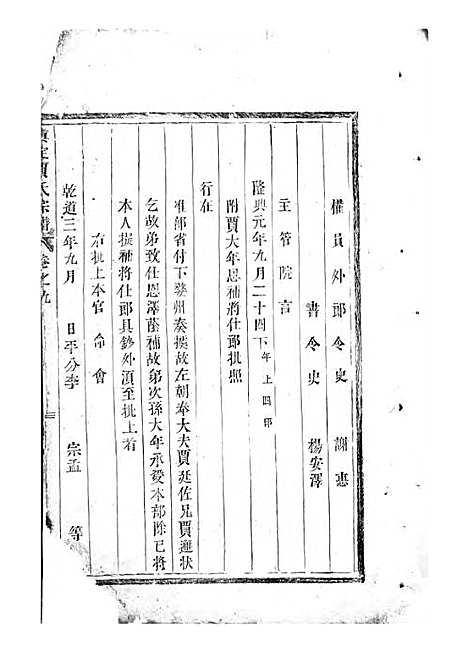 權員外郎令史 謝惠
書令史 楊安澤
主管院言
隆興元年九月二十四下午上四印
附賈大年恩補將仕郎批照
行在
准都省付下婺州奏據故左朝奉大夫賈廷佐兄賈邇狀
乞故弟致仕恩澤蔭補故弟次孫大年承受本部除已將
本人擬補將仕郎具鈔外須至批上者
右批上本官 會
乾道三年九月 日平公李 宗孟 等
真定賈氏宗譜 卷之九